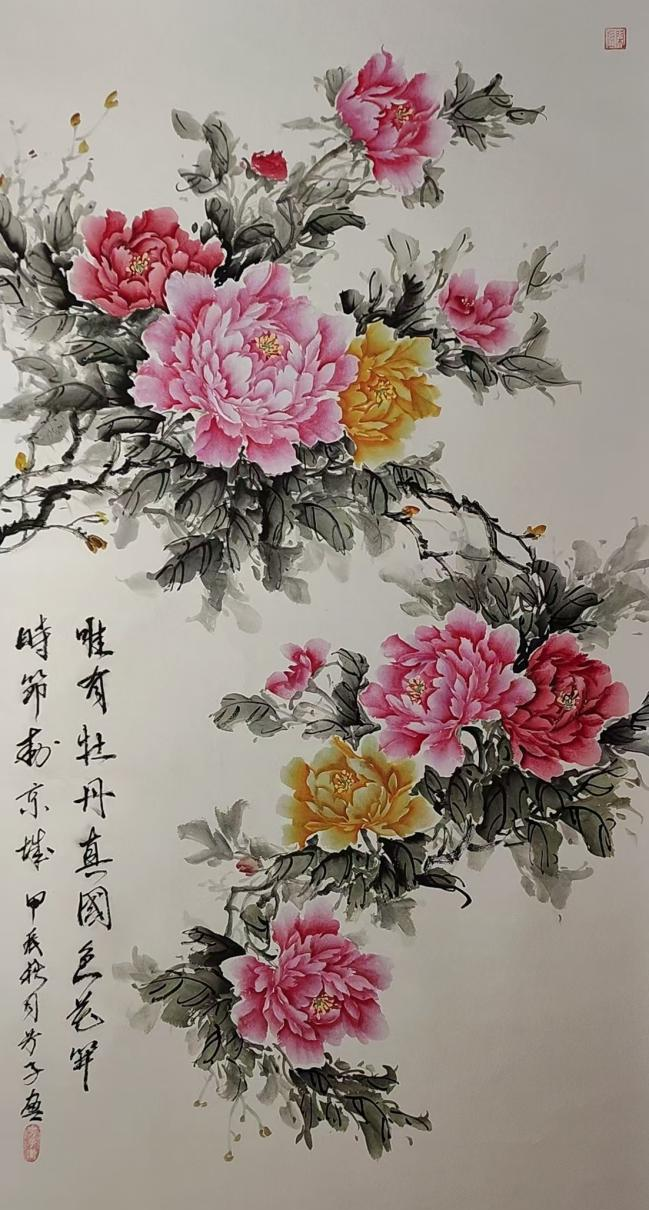 唯有牡丹真國色花開
時節動京城 甲辰秋月芳子畫